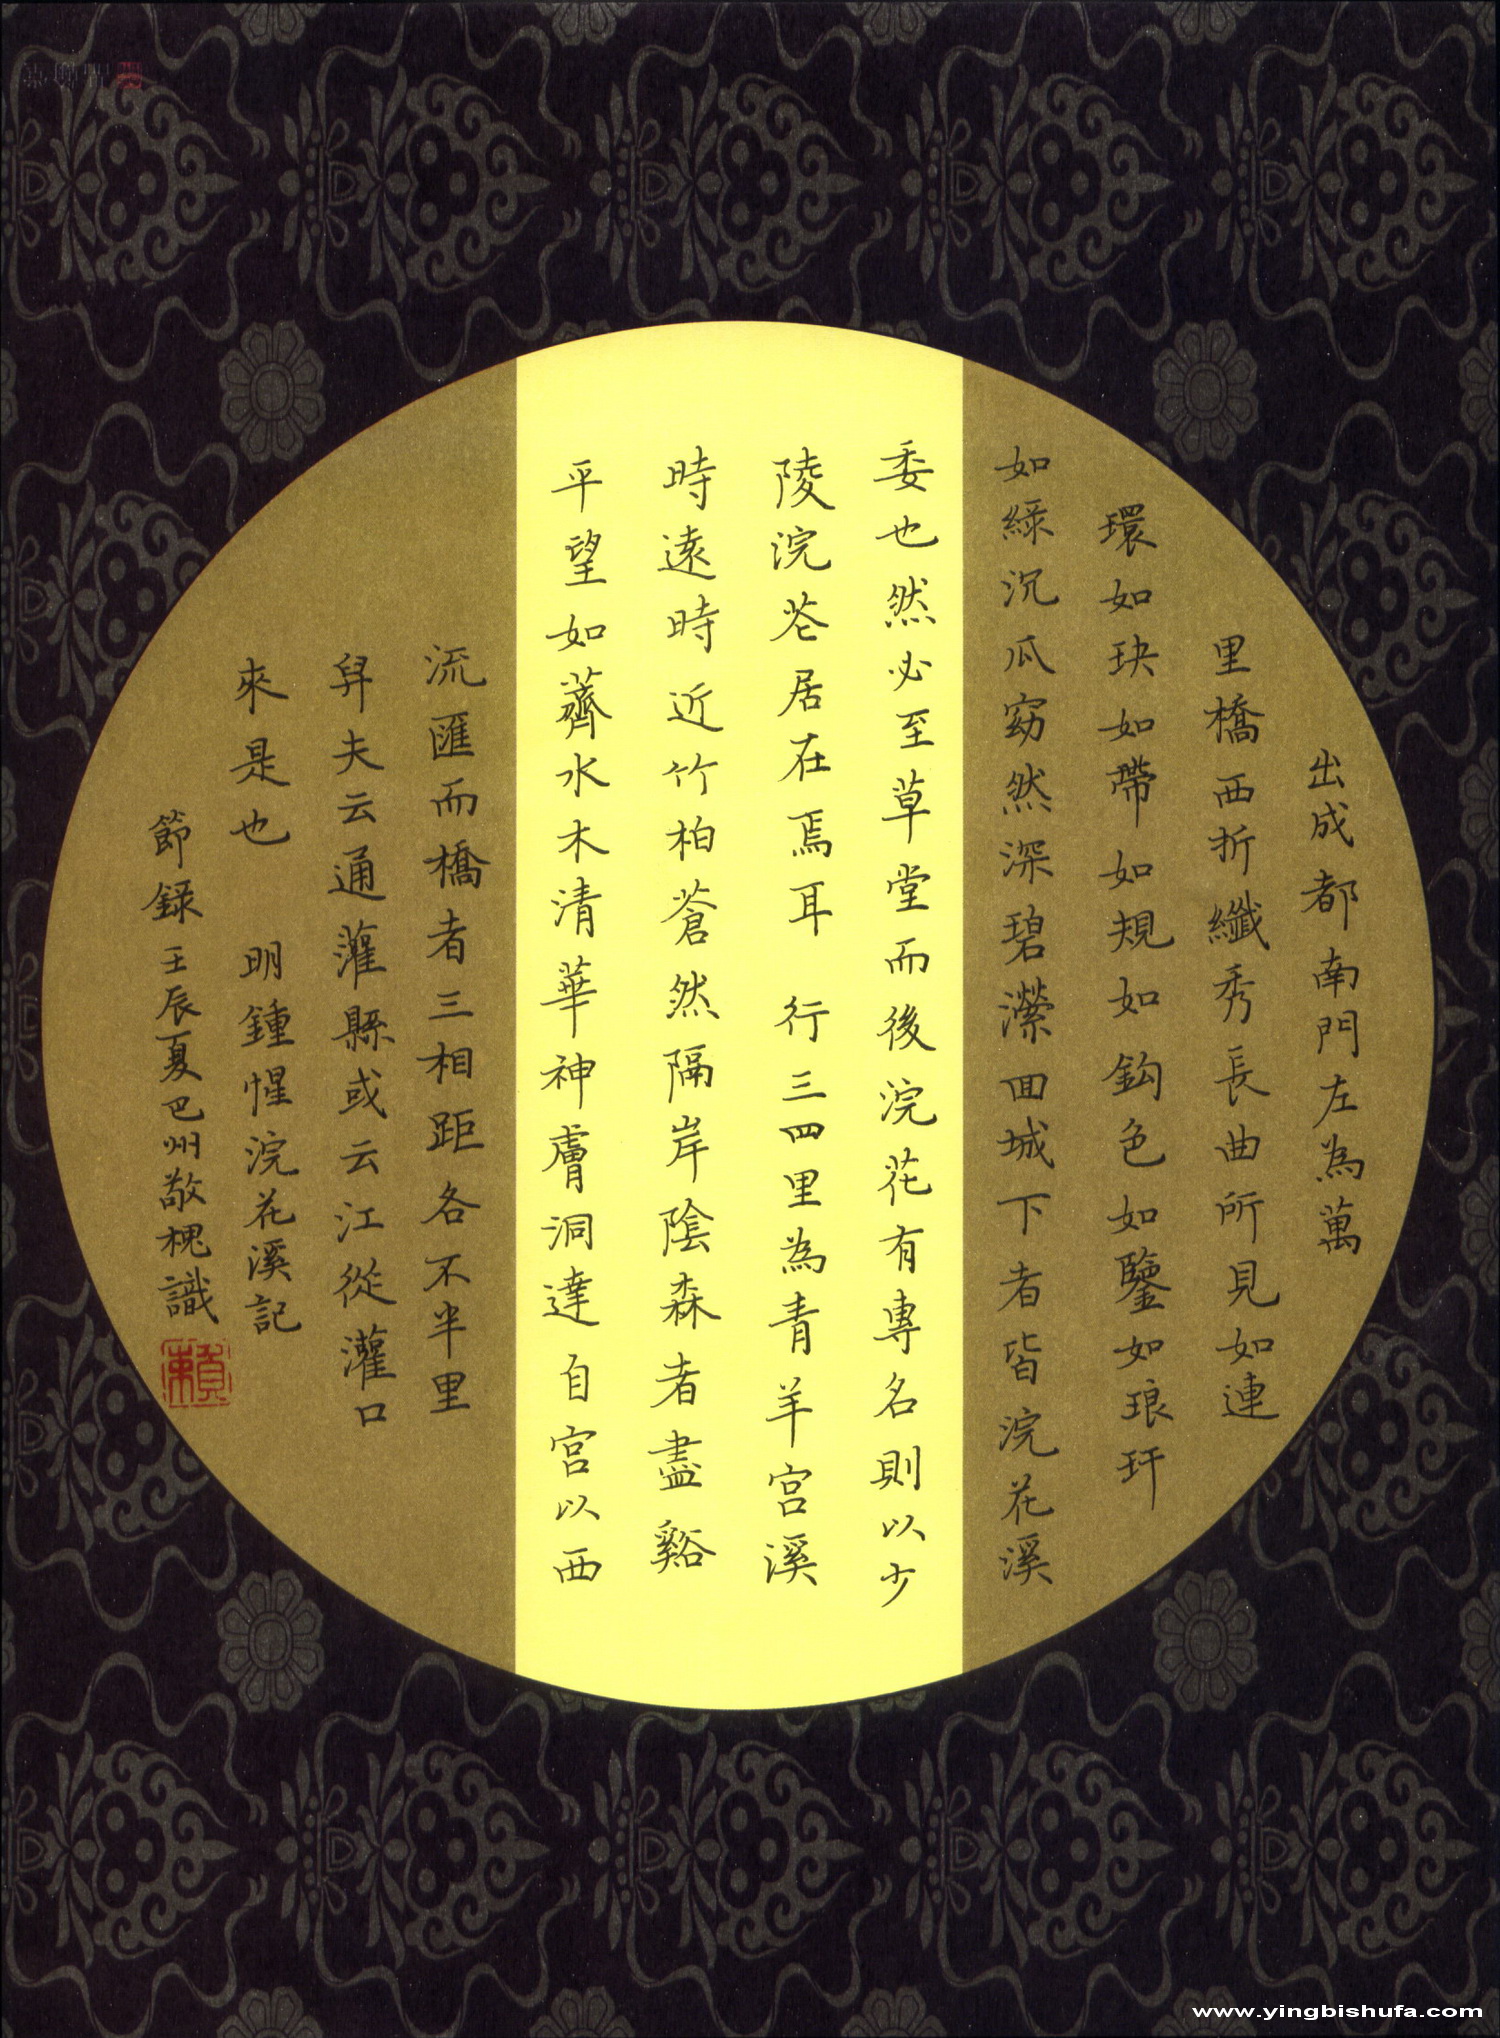 出成都南門左為萬
里橋西折纖秀長曲所見如連
環如玦如帶如規如鈎色如鑒如琅玕
如綠沉瓜窈然深碧瀠回城下者皆浣花溪
委也然必至草堂而後浣花有專名則以少
陵浣花居在焉耳 行三四里為青羊宮溪
時遠時近竹柏蒼然隔岸陰森者盡谿
平望如薺水木清華神膚洞達自宮以西
流匯而橋者三相距各不半里
舁夫云通灌縣或云江從灌口
來是也 明鍾惺浣花溪記
節録壬辰夏巴州敬槐識
www.yingbishufa.com